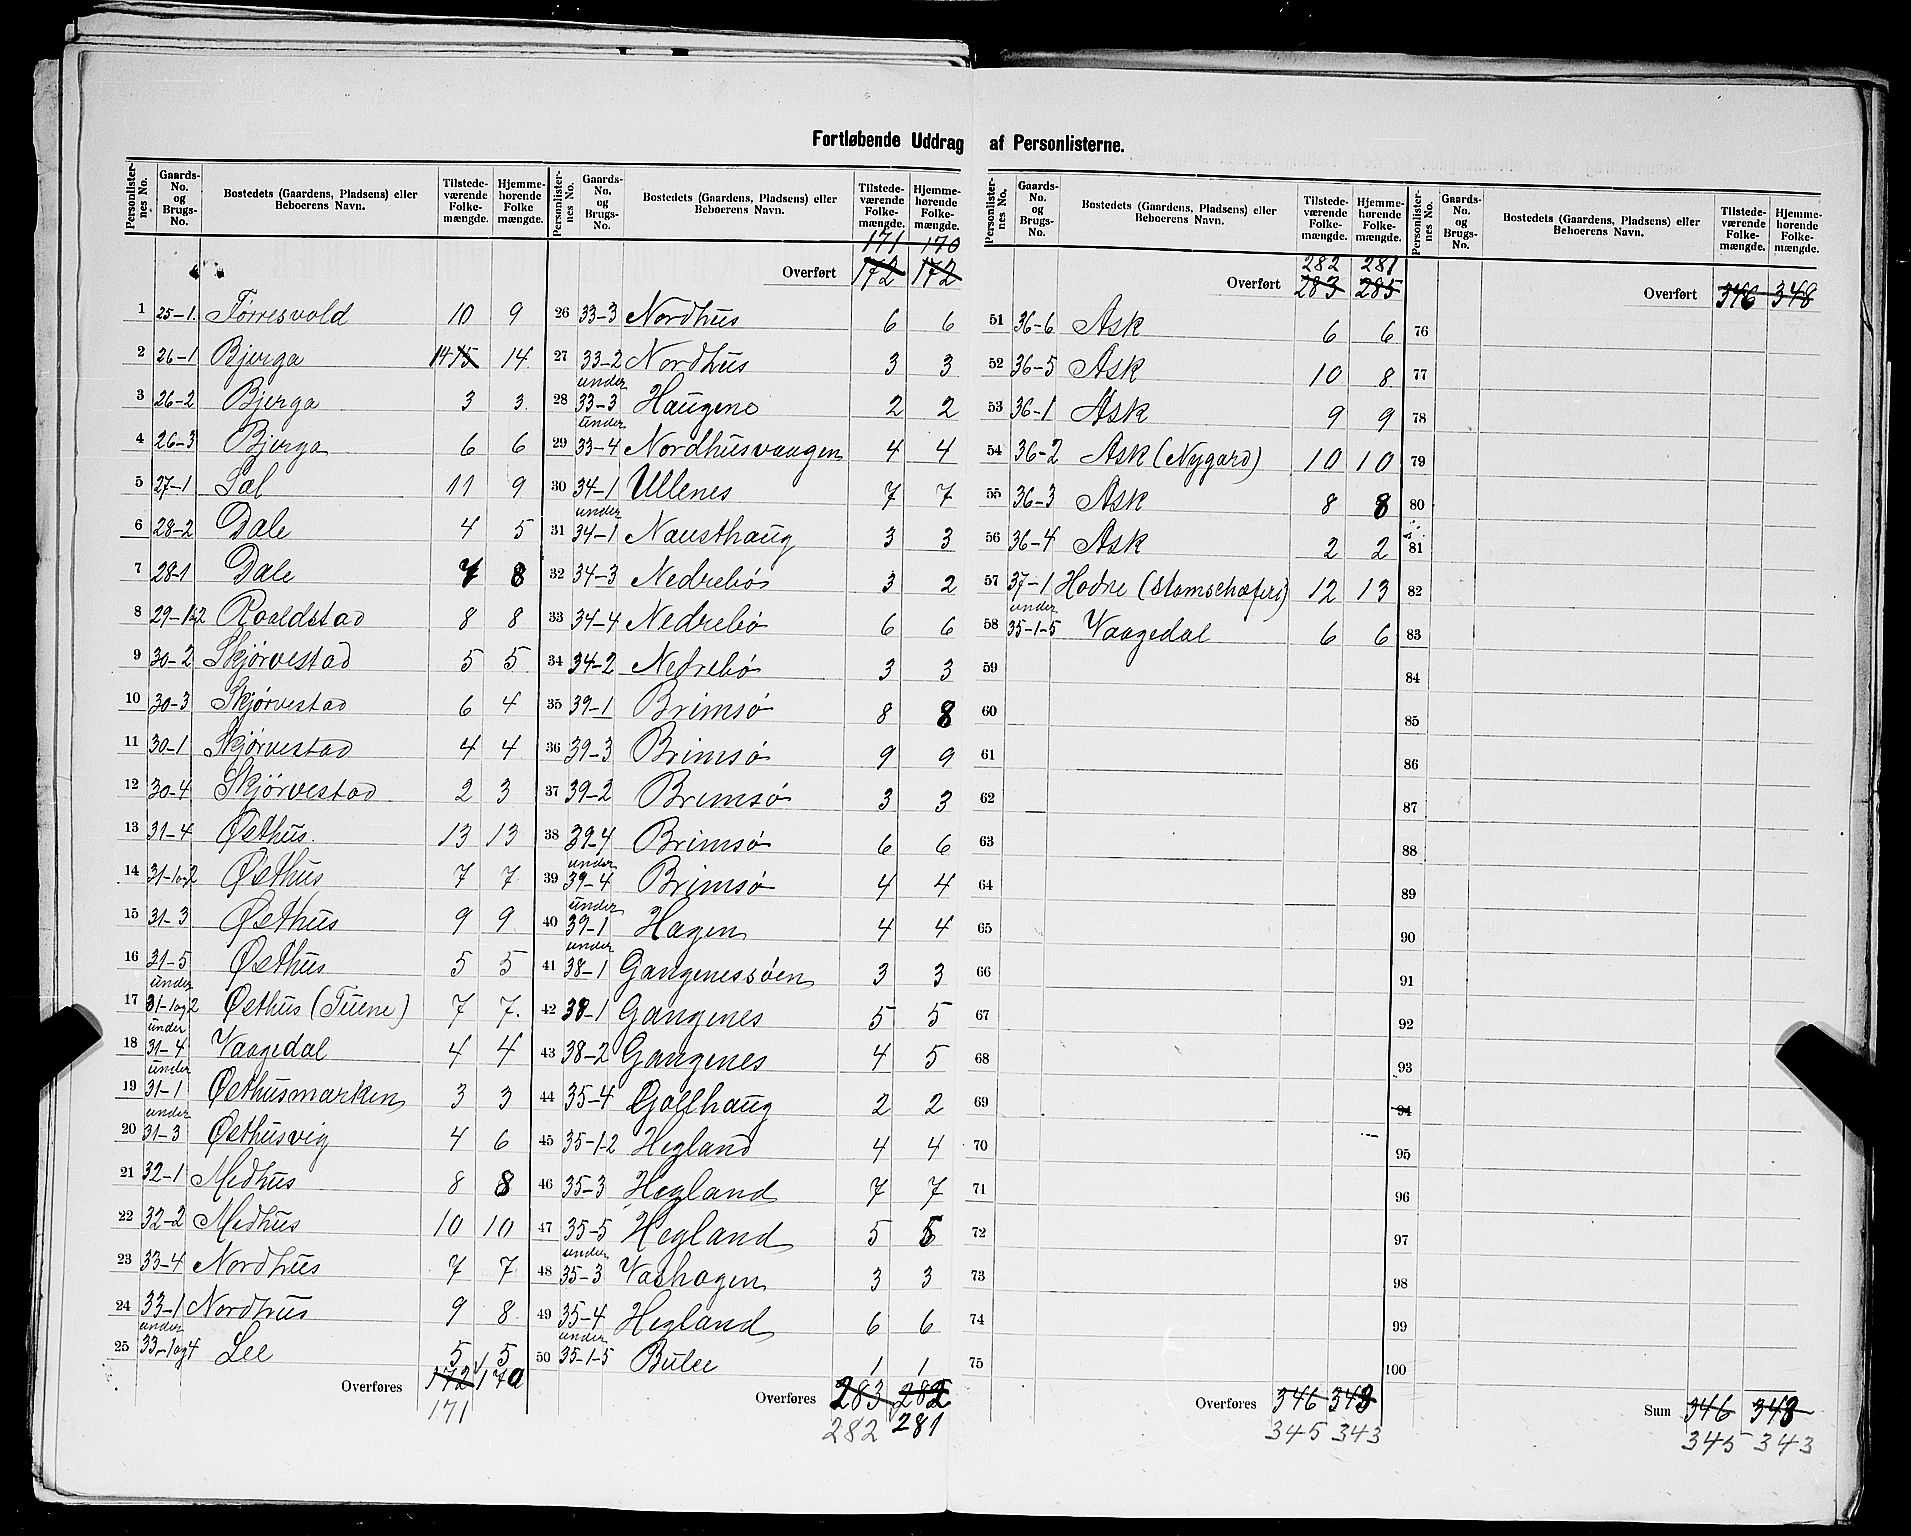 Fortløbende Uddrag af Personlisterne.
Personlisternes No. | Gaards-No. og Brugs-No. | Bostedets (Gaardens, Pladsens) eller Beboerens Navn. | Tilstedeværende Folkemængde. | Hjemmehørende Folkemængde.
1 25-1. Førresvold 10 9
2 26-1 Bjerga 14 15 14
3 26-2 Bjerga 3 3
4 26-3 Bjerga 6 6
5 27-1 Sal 11 9
6 28-2 Dale 4 5
7 28-1 Dale 7 8
8 29-1&2 Roaldstad 8 8
9 30-2 Skjørvestad 5 5
10 30-3 Skjørvestad 6 4
11 30-1 Skjørvestad 4 4
12 30-4 Skjørvestad 2 3
13 31-4 Østhus 13 13
14 31-1og2 Østhus 7 7
15 31-3 Østhus 9 9
16 31-5 Østhus 5 5
17 under 31-1og2 Østhus (Tuene) 7 7.
18 under 31-4 Vaagedal 4 4
19 under 31-1 Østhusmarken 3 3
20 under 31-3 Østhusvig 4 6
21 32-1 Medhus 8 8
22 32-2 Medhus 10 10
23 33-4 Nordhus 7 7
24 33-1 Nordhus 9 8
25 under 33-1og4 Lee 5 5
Overføres 172 170
171
Personlisternes No. | Gaards-No. og Brugs-No. | Bostedets (Gaardens, Pladsens) eller Beboerens Navn. | Tilstedeværende Folkemængde. | Hjemmehørende Folkemængde.
171 170
Overført 172 172
26 33-3 Nordhus 6 6
27 33-2 Nordhus 3 3
28 under 33-3 Haugene 2 2
29 under 33-4 Nordhusvaagen 4 4
30 34-1 Ullenes 7 7
31 under 34-1 Nausthaug 3 3
32 34-3 Nedrebø 3 2
33 34-4 Nedrebø 6 6
34 34-2 Nedrebø 3 3
35 39-1 Brimsø 8 8
36 39-3 Brimsø 9 9
37 39-2 Brimsø 3 3
38 39-4 Brimsø 6 6
39 under 39-4 Brimsø 4 4
40 under 39-1 Hagen 4 4
41 under 38-1 Gangenessøen 3 3
42 38-1 Gangenes 5 5
43 38-2 Gangenes 4 5
44 35-4 Gollhaug 2 2
45 35-1-2 Hegland 4 4
46 35-3 Hegland 7 7
47 35-5 Hegland 5 5
48 under 35-3 Vashagen 3 3
49 35-4 Hegland 6 6
50 under 35-1-5 Bulee 1 1
Overføres 283 282
282 281
Personlisternes No. | Gaards-No. og Brugs-No. | Bostedets (Gaardens, Pladsens) eller Beboerens Navn. | Tilstedeværende Folkemængde. | Hjemmehørende Folkemængde.
282 281
Overført 283 285
51 36-6 Ask 6 6
52 36-5 Ask 10 8
53 36-1 Ask 9 9
54 36-2 Ask (Nygard) 10 10
55 36-3 Ask 8 8
56 36-4 Ask 2 2
57 37-1 Hodne (Stamschæferi) 12 13
58 under 35-1-5 Vaagedal 6 6
59
60
61
62
63
64
65
66
67
68
69
70
71
72
73
74
75
Overføres 346 348
345 343
Personlisternes No. | Gaards-No. og Brugs-No. | Bostedets (Gaardens, Pladsens) eller Beboerens Navn. | Tilstedeværende Folkemængde. | Hjemmehørende Folkemængde.
Overført 346 348
76
77
78
79
80
81
82
83
84
85
86
87
88
89
90
91
92
93
94
95
96
97
98
99
100
Sum 346 348
345 343